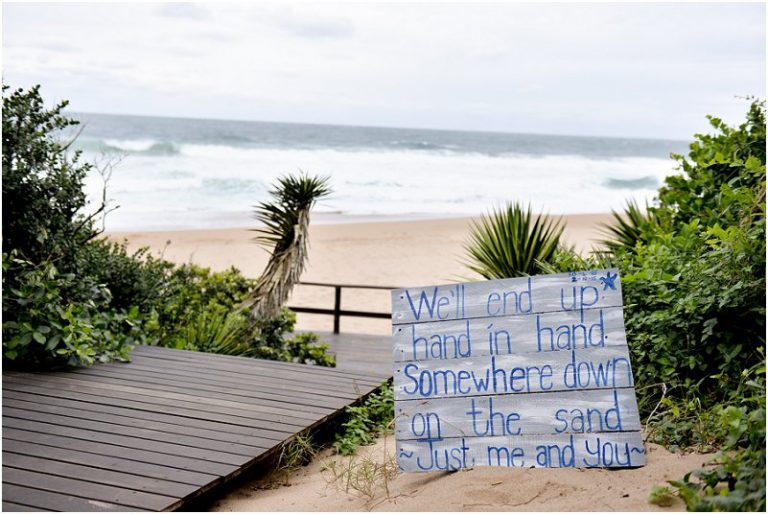 We'll end up
hand in hand
Somewhere down
on the sand
~Just me and You~